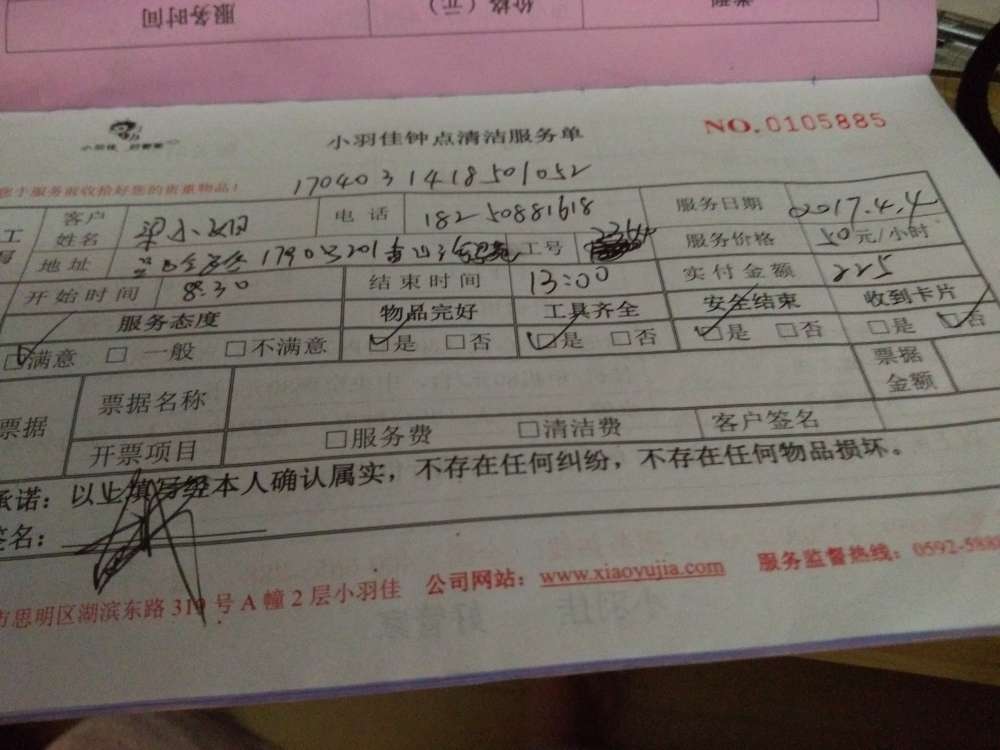 服务时间
价格（元）
小羽佳 好管家
小羽佳钟点清洁服务单
NO.0105885
于服务前收拾好您的贵重物品！
1704031418501052
工
客户姓名 梁小姐 电话 18250881618 服务日期 2017.4.4
地址 1790号201 工号 服务价格 50元/小时
开始时间 8:30 结束时间 13:00 实付金额 225
服务态度 物品完好 工具齐全 安全结束 收到卡片
□满意 □一般 □不满意 □是 □否 □是 □否 □是 □否 □是 □否
票据 票据名称 票据金额
开票项目 □服务费 □清洁费 客户签名
承诺：以上填写经本人确认属实，不存在任何纠纷，不存在任何物品损坏。
签名：
市思明区湖滨东路319号A幢2层小羽佳 公司网站：www.xiaoyujia.com 服务监督热线：0592-588